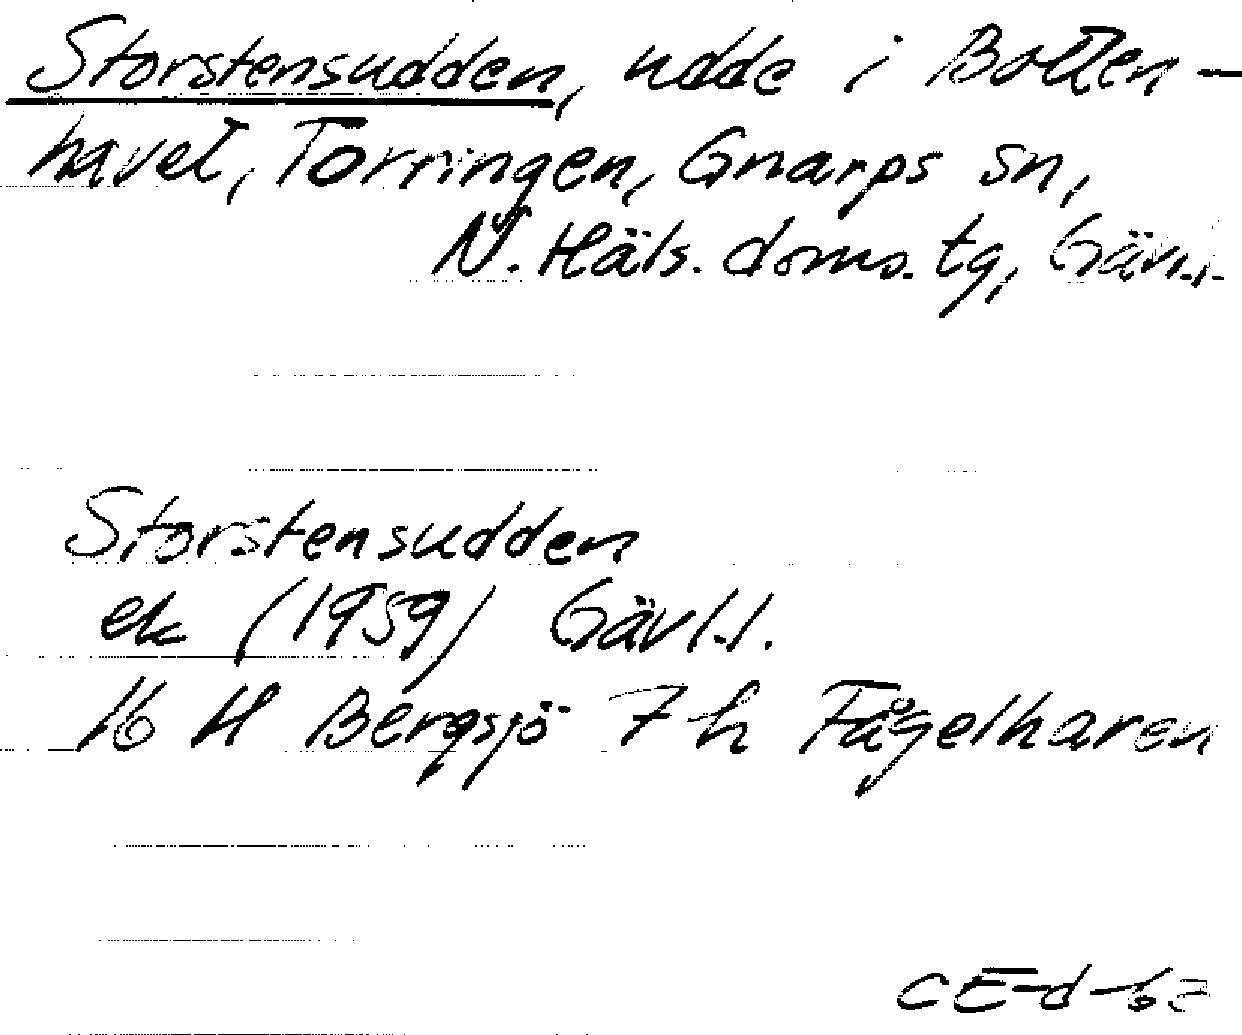 Storstensudden, udde i Botten-
havet, Torringen, Gnarps sn,
N. Häls. doms. tg, Gävl.l.
Storstensudden
ek (1959) Gävl.l.
16 H Bergsjö 7 h Fågelharen
CE-d-62